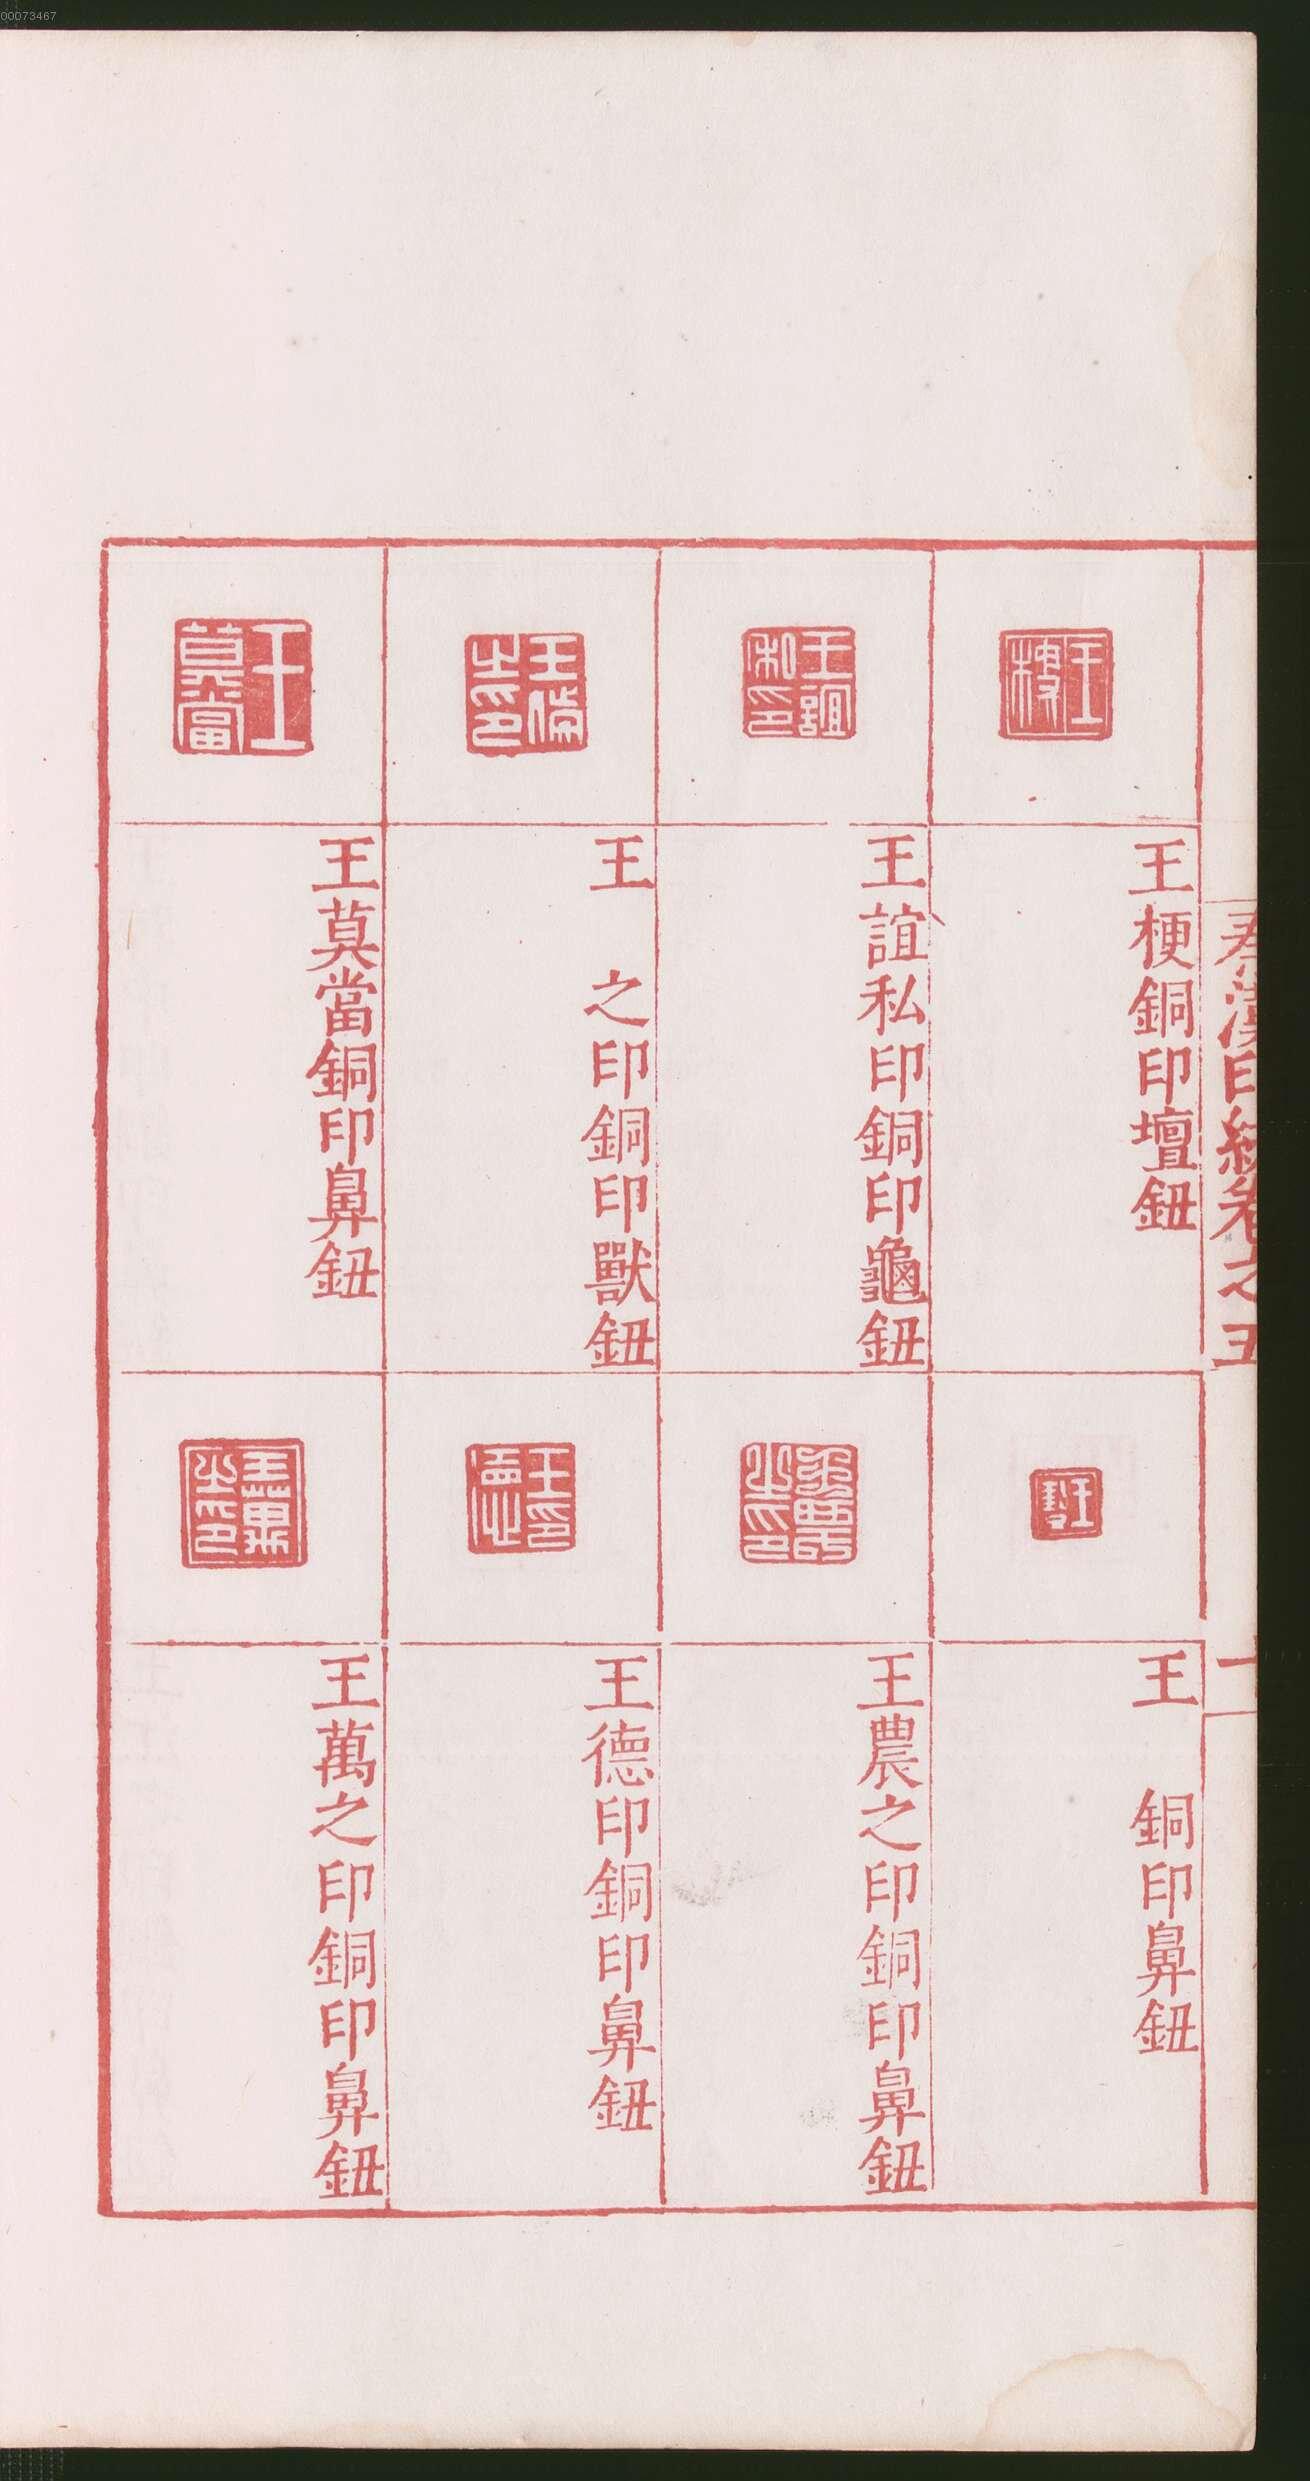 00073467
秦漢印統卷之五
王梗銅印壇鈕
王誼私印銅印龜鈕
王 之印銅印獸鈕
王莫當銅印鼻鈕
王 銅印鼻鈕
王農之印銅印鼻鈕
王德印銅印鼻鈕
王萬之印銅印鼻鈕